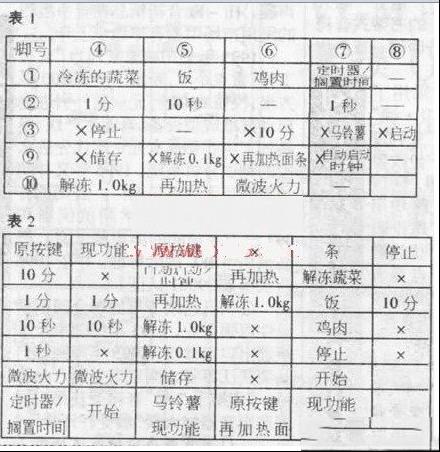 表 1
脚号 ④ ⑤ ⑥ ⑦ ⑧
① 冷冻的蔬菜 饭 鸡肉 定时器/搁置时间 —
② 1分 10秒 — 1秒 —
③ ×停止 — ×10分 ×马铃薯 ×启动
⑨ ×储存 ×解冻0.1kg ×再加热面条 ×自动启动时钟 —
⑩ 解冻1.0kg 再加热 微波火力 — —
表 2
原按键 现功能 原按键 × 条 停止
10分 × 自动启动/时钟 再加热 解冻蔬菜 ×
1分 1分 再加热 解冻1.0kg 饭 10分
10秒 10秒 解冻1.0kg × 鸡肉 ×
1秒 × 解冻0.1kg × 停止 ×
微波火力 微波火力 储存 × 开始
定时器/搁置时间 开始 马铃薯现功能 原按键再加热面 现功能—